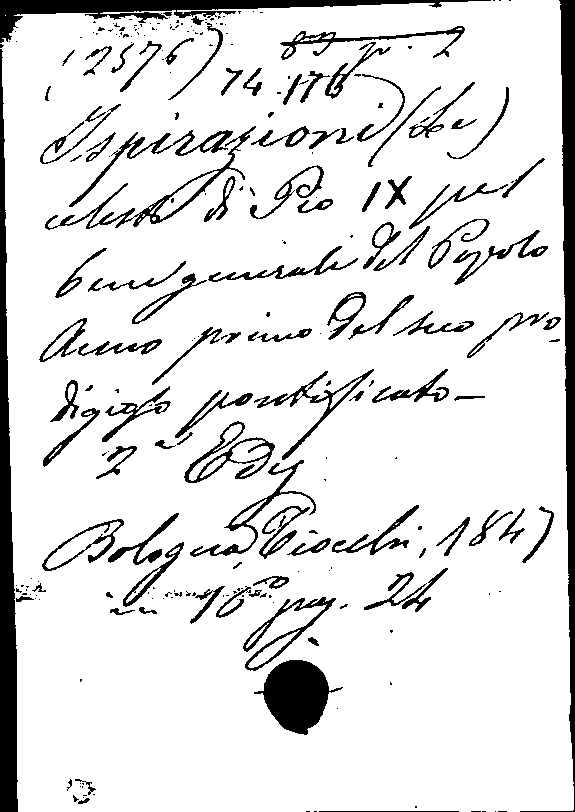 (2576) 83 p. 2
74 176
Ispirazioni (Le)
celesti di Pio IX pel
bene generale del Popolo
Anno primo del suo pro-
digioso pontificato -
2ª Ediz
Bologna, Tiocchi, 1847
in 16° pag. 24